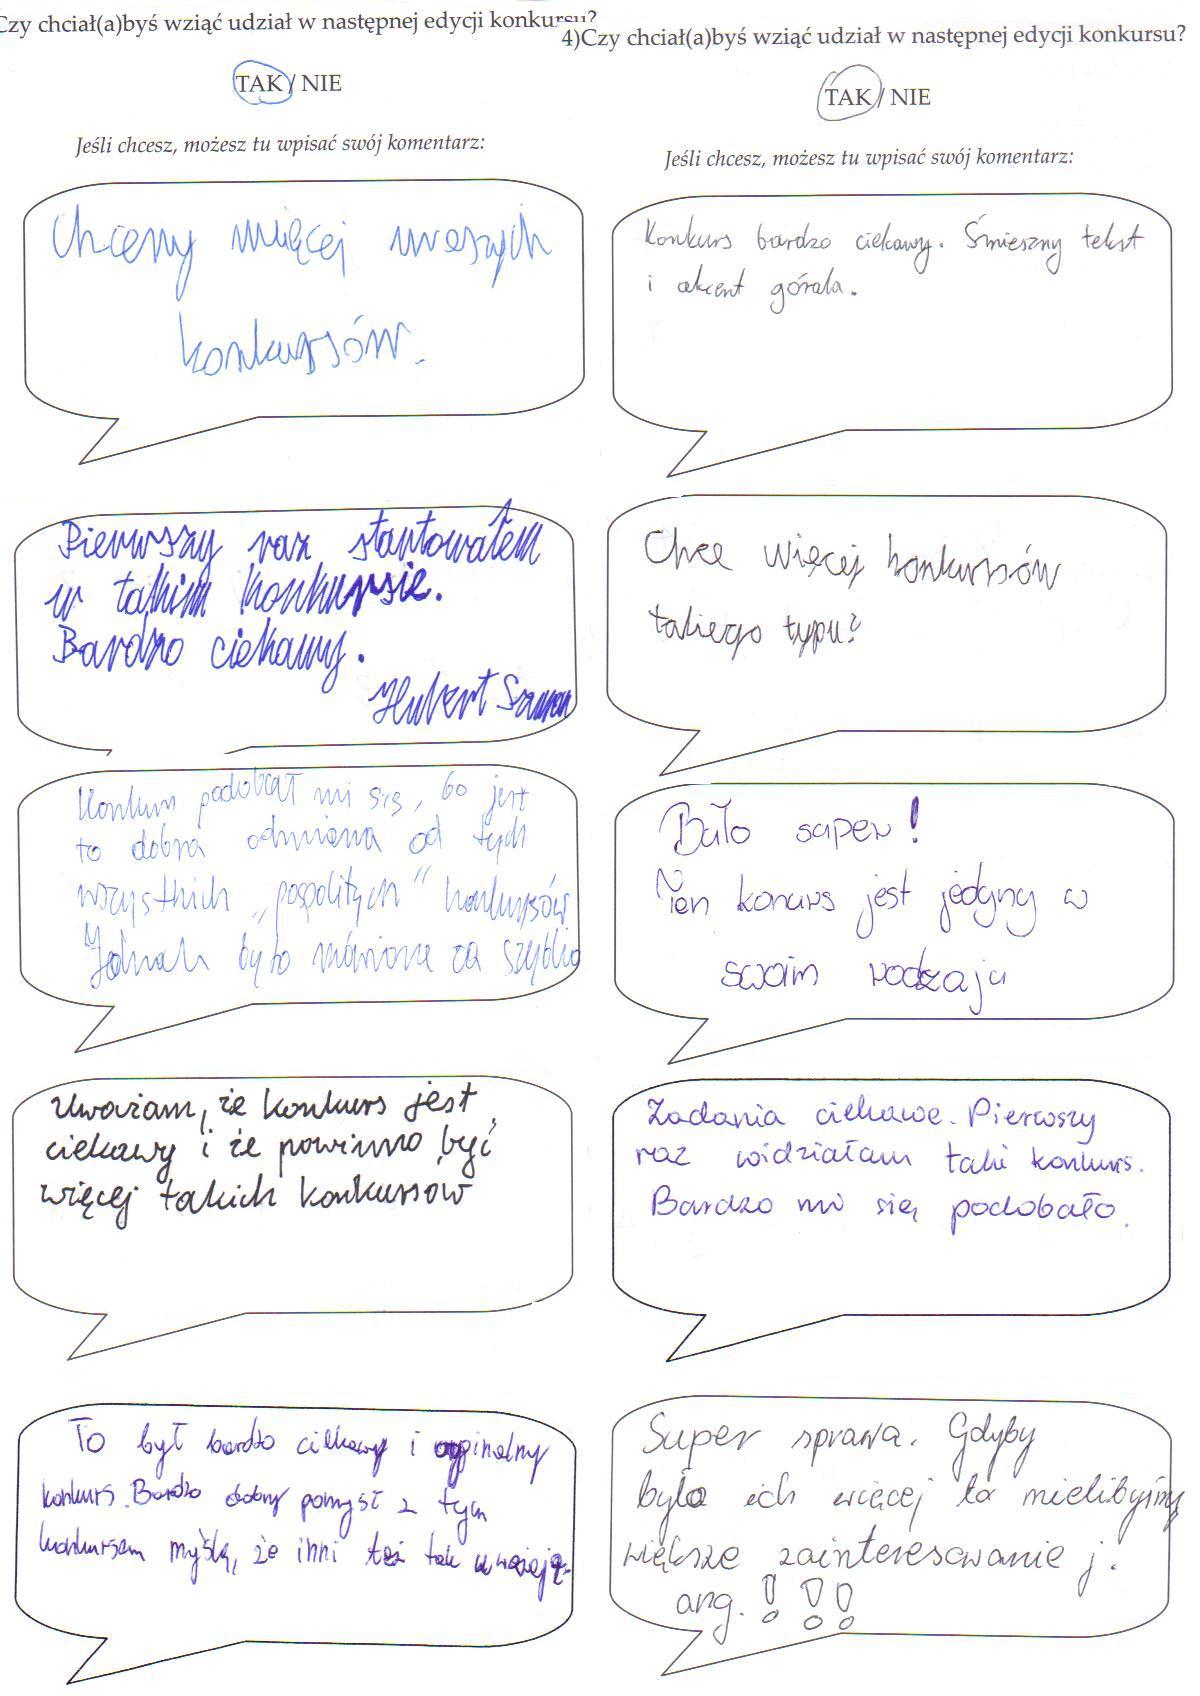 Czy chciał(a)byś wziąć udział w następnej edycji konkursu?
TAK / NIE
Jeśli chcesz, możesz tu wpisać swój komentarz:
Chcemy więcej waszych
konkursów.
Pierwszy raz startowałem
w takim konkursie.
Bardzo ciekawy.
Hubert
Konkurs podobał mi się, bo jest
to dobra odmiana od tych
wszystkich „pospolitych" konkursów
Jednak było mówione za szybko
Uważam, że konkurs jest
ciekawy i że powinno być
więcej takich konkursów
To był bardzo ciekawy i oryginalny
konkurs. Bardzo dobry pomysł z tym
konkursem myślę, że inni też tak uważają.
4)Czy chciał(a)byś wziąć udział w następnej edycji konkursu?
TAK / NIE
Jeśli chcesz, możesz tu wpisać swój komentarz:
Konkurs bardzo ciekawy. Śmieszny tekst
i akcent górala.
Chce więcej konkursów
takiego typu?
Było super!
Ten koncurs jest jedyny w
swoim rodzaju
Zadania ciekawe. Pierwszy
raz widziałam taki konkurs.
Bardzo mi się podobało.
Super sprawa. Gdyby
było ich więcej to mielibyśmy
większe zainteresowanie j.
ang. !!!